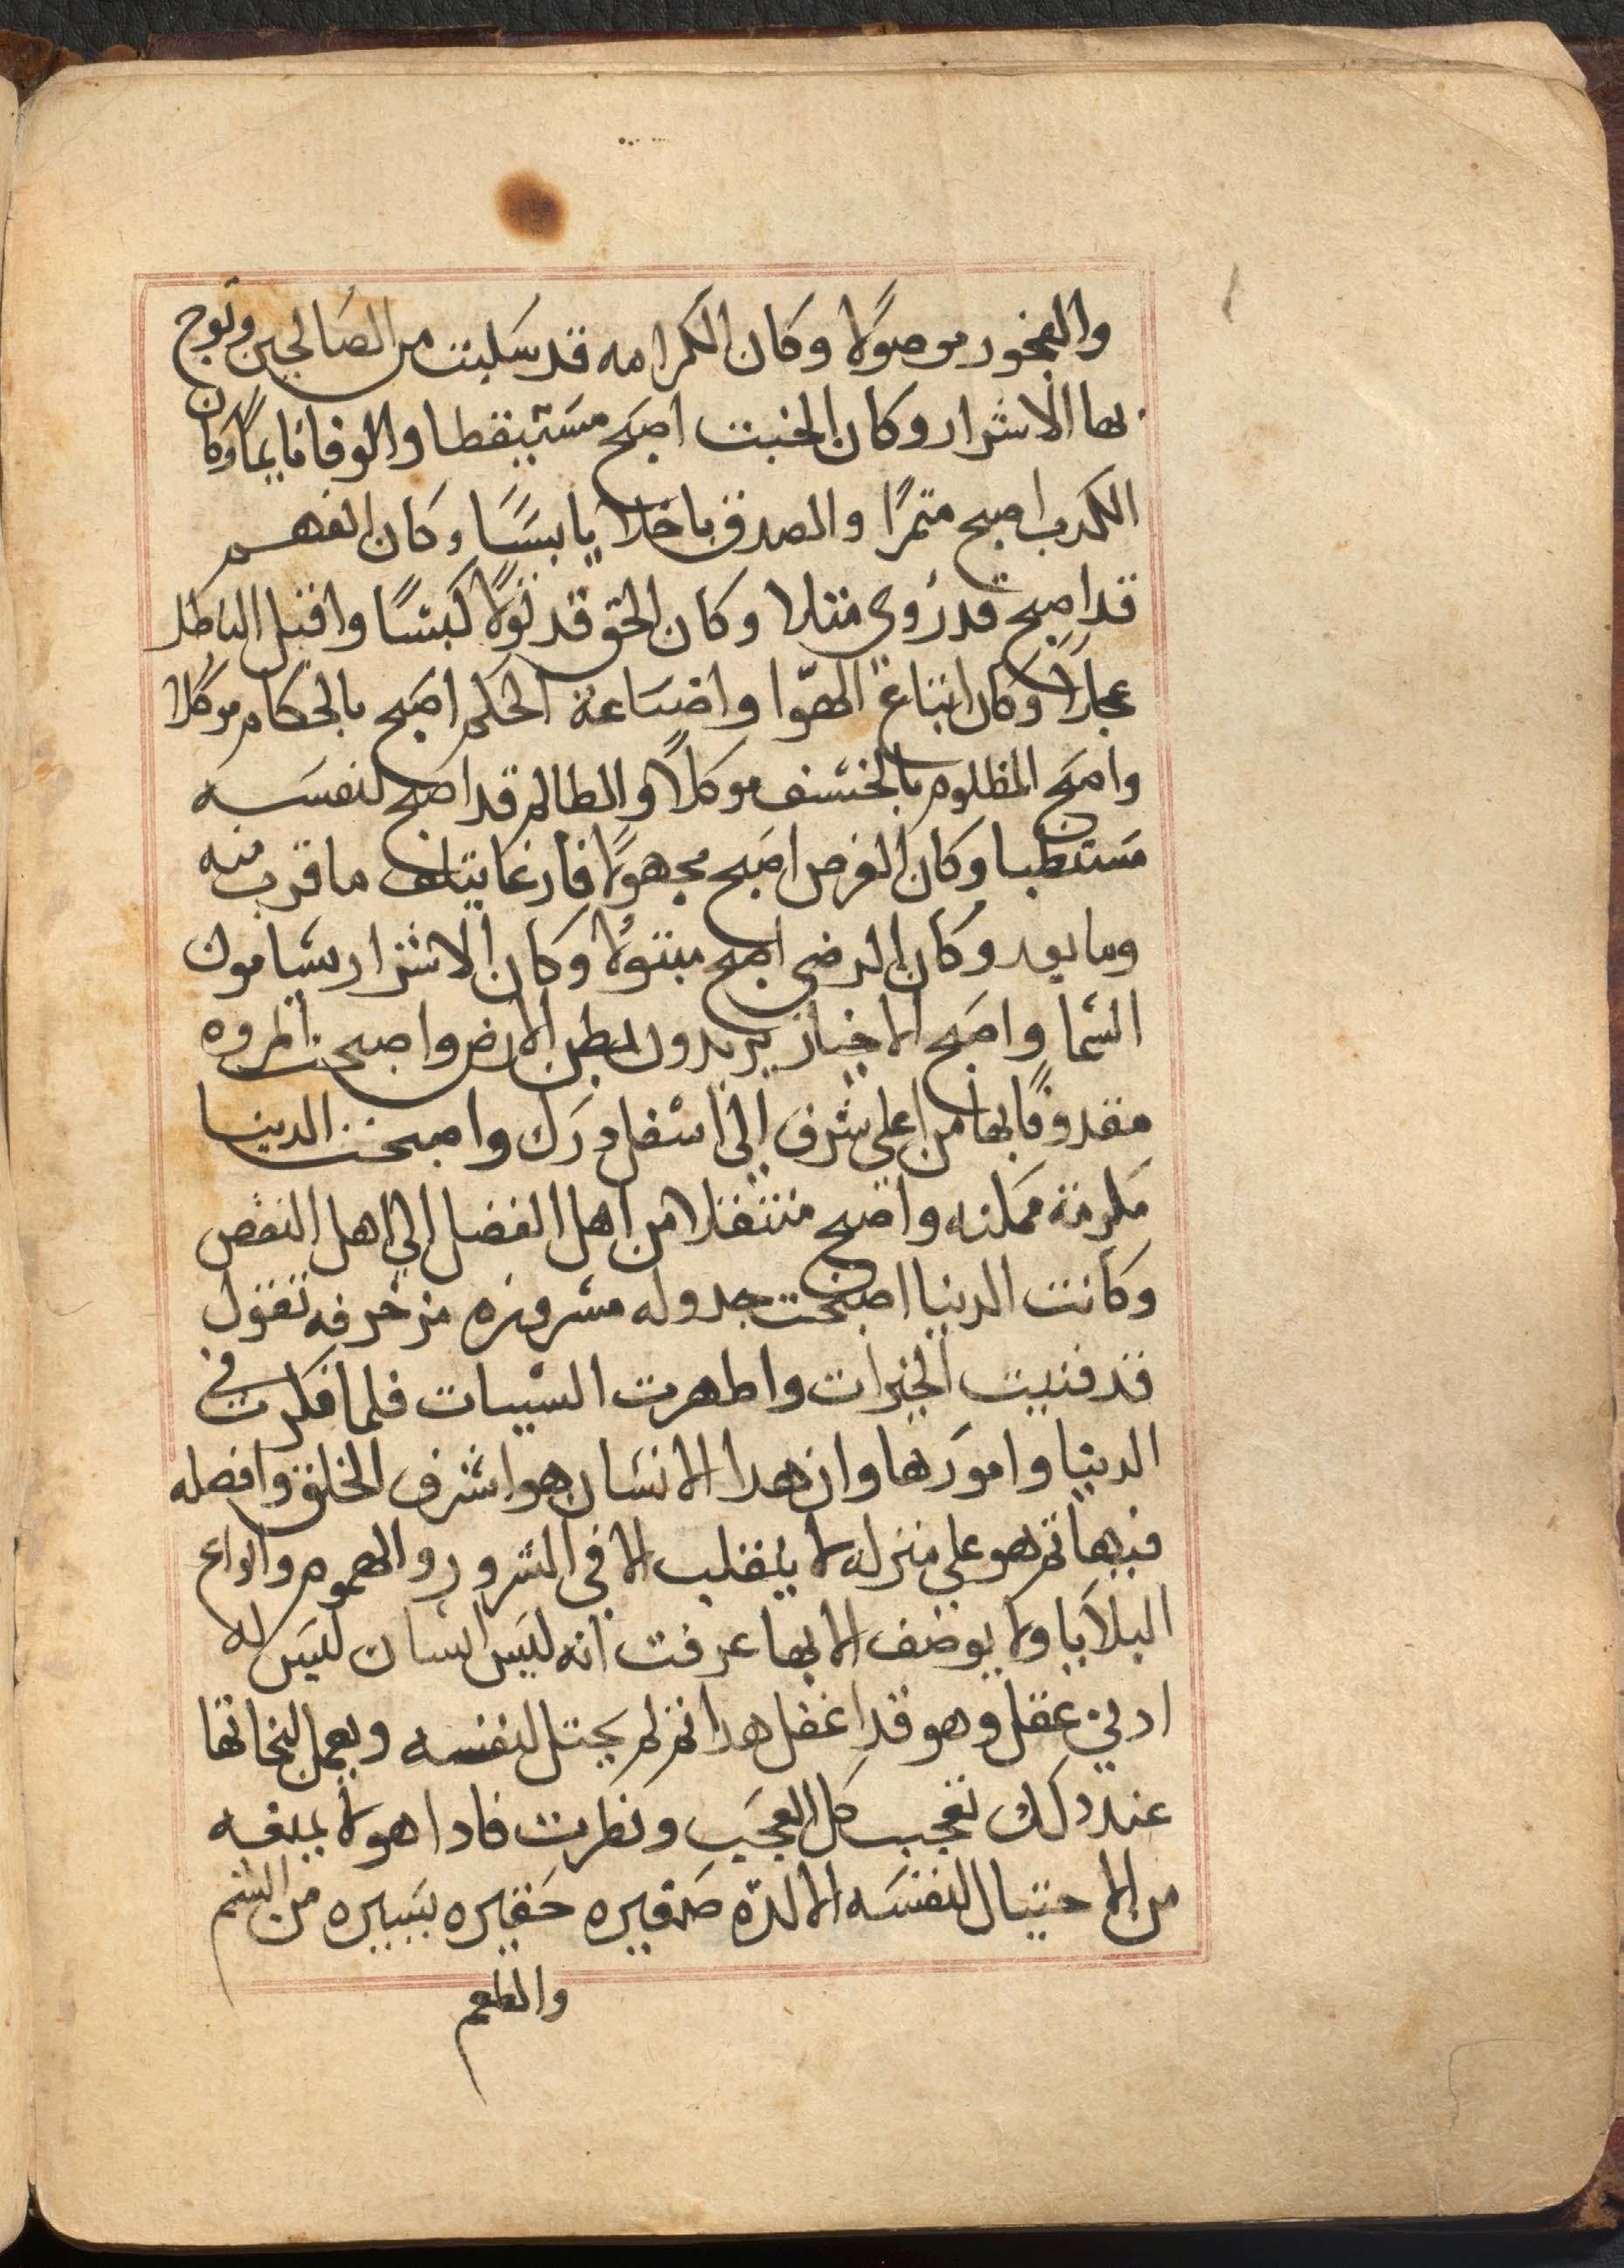 والفجور موصولا وكان الكرامه قد سلبت من الصالحين وتوج
بها الاشرار وكان الخبت اصبح مستيقظا والوفا نايماً وكان
الكدب اصبح متمرًا والصدق باخلا يابسًا وكان الفهم
قد اصبح قد روي متلا وكان الحق قد تولا كبشًا واقبل الباطل
وكان اتباع الهوّا واضاعة الحكم اصبح بالحكام موكلا
واصبح المظلوم بالخسف موكلاً والظالم قد اصبح لنفسه
وكان الفرص اصبح مجهولا ما قرب منه
وما بعد وكان الرضي اصبح مبتولا وكان الاشرار يسامون
السما واصبح الاخيار يريدون بطن الارض واصبحت المروه
مقدوفًا بها من اعلي شرف الي اسفل درك واصبحت الدينا
مكرمة ممكنه واصبح منتقلا من اهل الفضل الي اهل النقص
وكانت الدنيا اصبحت جدوله مسروره مزخرفه تقول
قد فنيت الخيرات واظهرت السيات فلما فكرت في
الدنيا وامورها وان هدا الانسان هو اشرف الخلق وافضله
فيها تم هو علي منزله لا ينقلب الا في الشرور والهموم وانواع
البلايا ولا يوصف الا بها عرفت انه ليس انسان ليس له
ادني عقل وهو قد اغفل هدا تم لم يحتل لنفسه ويعمل لنجاتها
عند دلك تعجب كل العجب ونظرت فادا هو لا يمنعه
من الاحتيال لنفسه الا لدّه صغيره حقيره يسيره من الشم
والطعم